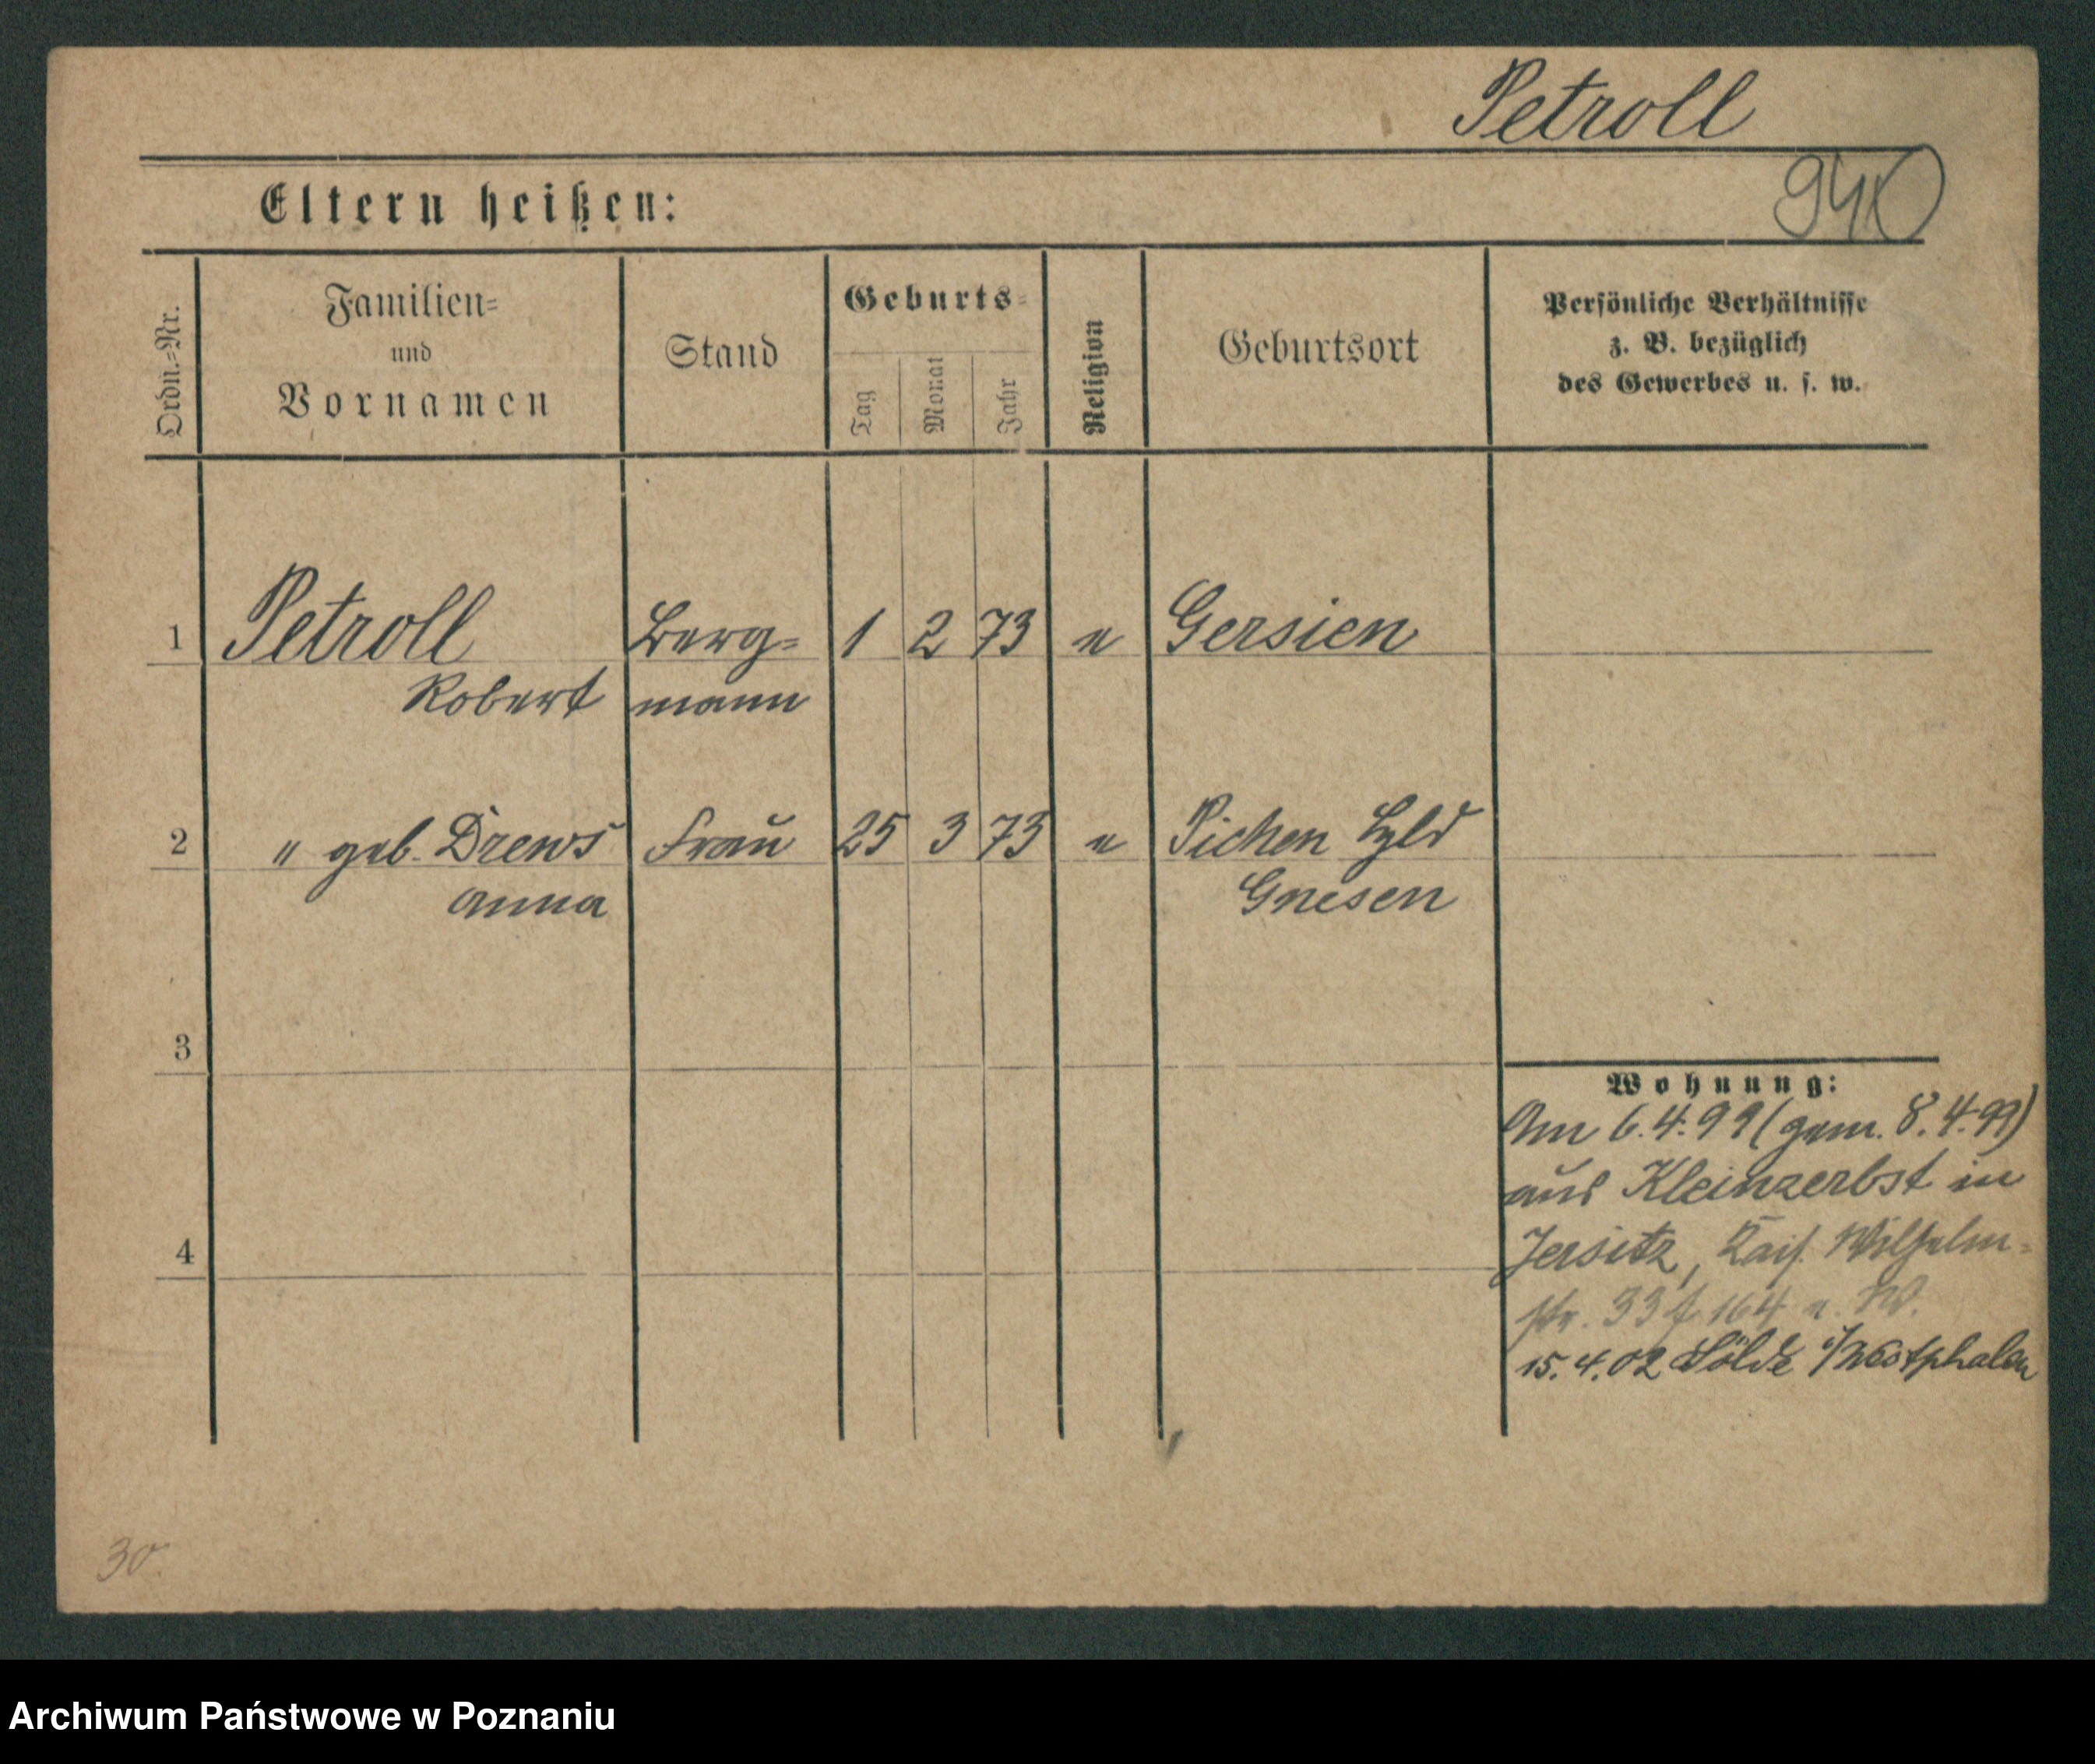 Petroll
940
Eltern heißen:
Ordn.=Nr.
Familien=
und
Vornamen
Stand
Geburts=
Tag
Monat
Jahr
Religion
Geburtsort
Persönliche Verhältnisse
z. B. bezüglich
des Gewerbes u. s. w.
1 Petroll Berg= 1 2 73 e Gersien
Robert mann
2 " geb. Drews Frau 25 3 73 e Pichen
Anna Gnesen
3
Wohnung:
Am 6.4.99 (gem. 8.4.99)
aus Kleinzerbst in
4
Jersitz, Kais. Wilhelm=
str. 33 f. 164
15.4.02 Sölde i/Westphalen
30
Archiwum Państwowe w Poznaniu